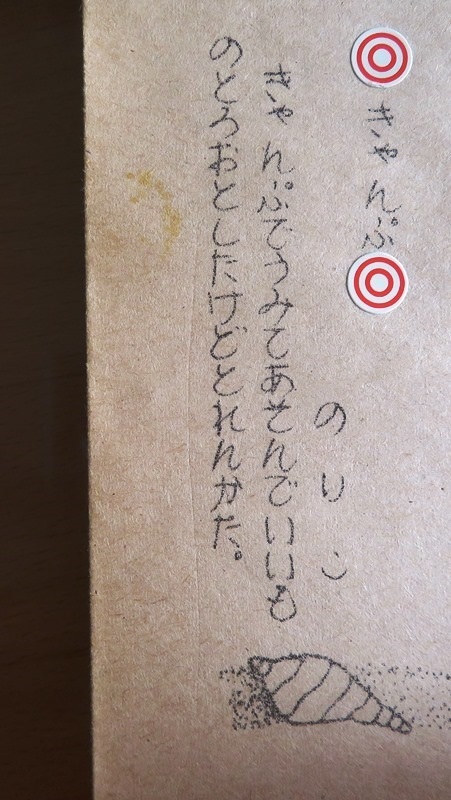 きゃんぷ
のりこ
きゃんぷでうみてあそんでいいも
のとろおとしたけどとれんかた。